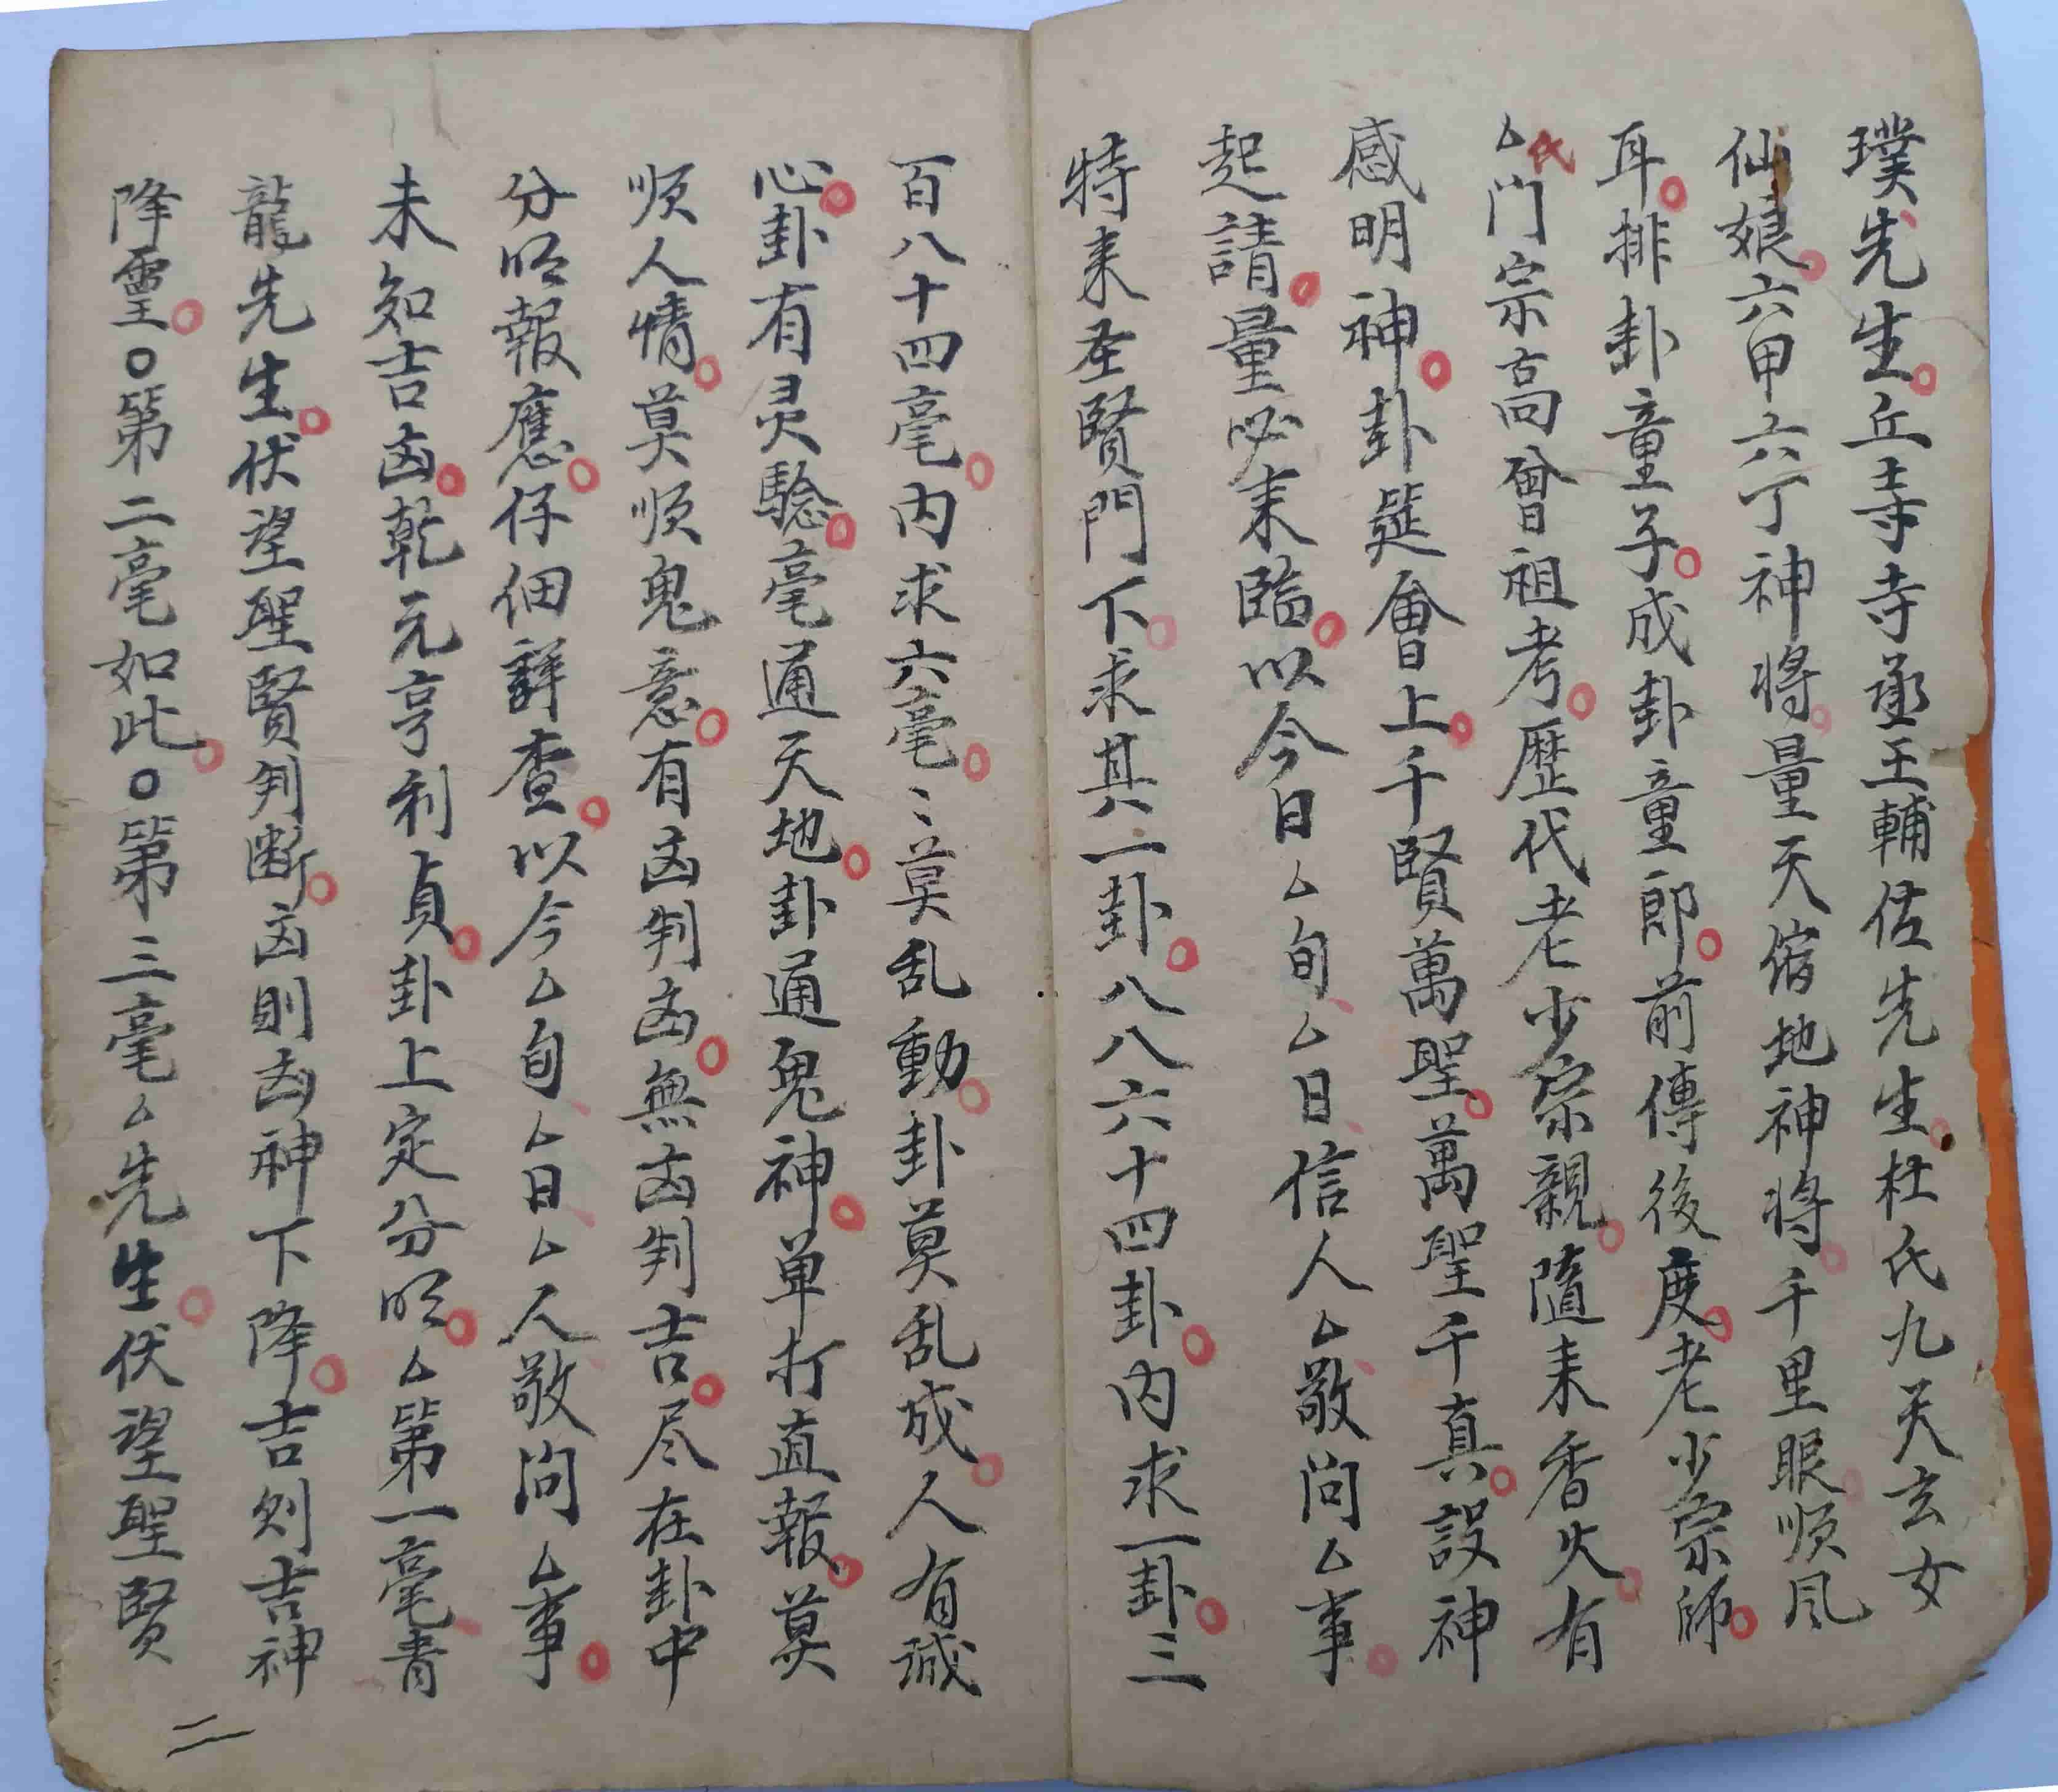 璞先生。丘寺寺丞王輔佐先生。杜氏九天玄女
仙娘。六甲六丁神将。量天宿地神将。千里眼順风
耳。排卦童子。成卦童郎。前傳後度。老少宗師。
厶氏门宗高曾祖考。歷代老少宗親。隨来香火。有
感明神。卦筵會上。千賢萬聖。萬聖千真。設神
起請。量必来臨。以今日厶旬厶日信人厶敬问厶事。
特来圣賢門下。求其一卦。八八六十四卦。内求一卦。三
百八十四毫。内求六毫。〻莫乱動。卦莫乱成。人有誠
心。卦有灵驗。毫通天地。卦通鬼神。单打直報。莫
順人情。莫順鬼意。有凶判凶。無凶判吉。尽在卦中
分明報應。仔细詳查。以今厶旬厶日厶人敬问厶事。
未知吉凶。乾元亨利貞。卦上定分明。厶第一毫青
龍先生。伏望聖賢判断。凶則凶神下降。吉则吉神
降靈。〇第二毫如此。〇第三毫厶先生。伏望聖賢
二